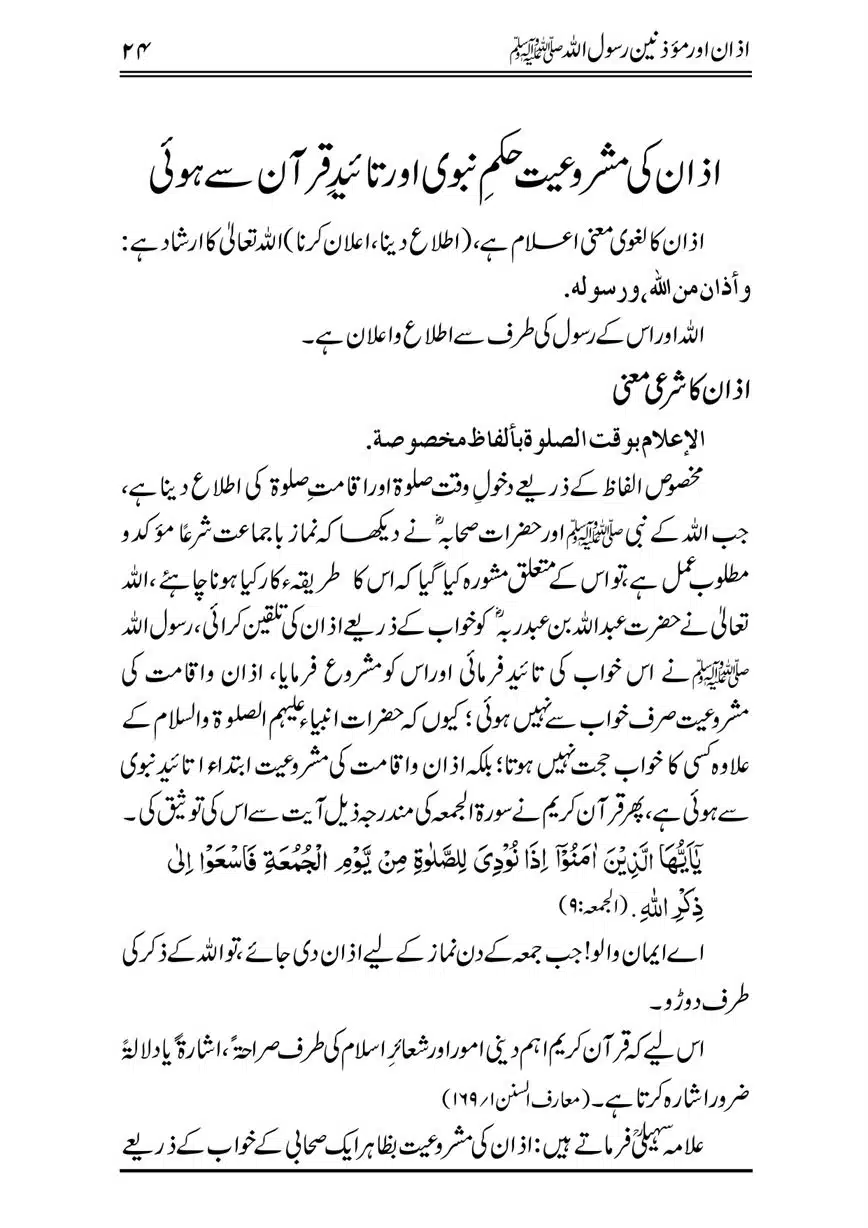 اذان اور مؤذنین رسول اللہ ﷺ
۲۴
اذان کی مشروعیت حکمِ نبوی اور تائیدِ قرآن سے ہوئی
اذان کا لغوی معنی اعلام ہے، (اطلاع دینا، اعلان کرنا) اللہ تعالیٰ کا ارشاد ہے:
وأذان من اللہ، ورسولہ.
اللہ اور اس کے رسول کی طرف سے اطلاع واعلان ہے۔
اذان کا شرعی معنی
الإعلام بوقت الصلوة بألفاظ مخصوصة.
مخصوص الفاظ کے ذریعے دخولِ وقت صلوۃ اور اقامتِ صلوۃ کی اطلاع دینا ہے،
جب اللہ کے نبی ﷺ اور حضرات صحابہؓ نے دیکھا کہ نماز باجماعت شرعًا مؤکد و
مطلوب عمل ہے، تو اس کے متعلق مشورہ کیا گیا کہ اس کا طریقہء کار کیا ہونا چاہئے، اللہ
تعالیٰ نے حضرت عبد اللہ بن عبدربہؓ کو خواب کے ذریعے اذان کی تلقین کرائی، رسول اللہ
ﷺ نے اس خواب کی تائید فرمائی اور اس کو مشروع فرمایا، اذان واقامت کی
مشروعیت صرف خواب سے نہیں ہوئی؛ کیوں کہ حضرات انبیاء علیہم الصلوۃ والسلام کے
علاوہ کسی کا خواب حجت نہیں ہوتا؛ بلکہ اذان واقامت کی مشروعیت ابتداءا تائید نبوی
سے ہوئی ہے، پھر قرآن کریم نے سورۃ الجمعہ کی مندرجہ ذیل آیت سے اس کی توثیق کی۔
يٰٓاَيُّهَا الَّذِيْنَ اٰمَنُوْٓا اِذَا نُوْدِيَ لِلصَّلٰوةِ مِنْ يَّوْمِ الْجُمُعَةِ فَاسْعَوْا اِلٰى
ذِكْرِ اللهِ. (الجمعہ:۹)
اے ایمان والو! جب جمعہ کے دن نماز کے لیے اذان دی جائے، تو اللہ کے ذکر کی
طرف دوڑو۔
اس لیے کہ قرآن کریم اہم دینی امور اور شعائرِ اسلام کی طرف صراحۃً، اشارۃً یا دلالۃً
ضرور اشارہ کرتا ہے۔ (معارف السنن ۱/۱۶۹)
علامہ سہیلیؒ فرماتے ہیں: اذان کی مشروعیت بظاہر ایک صحابی کے خواب کے ذریعے